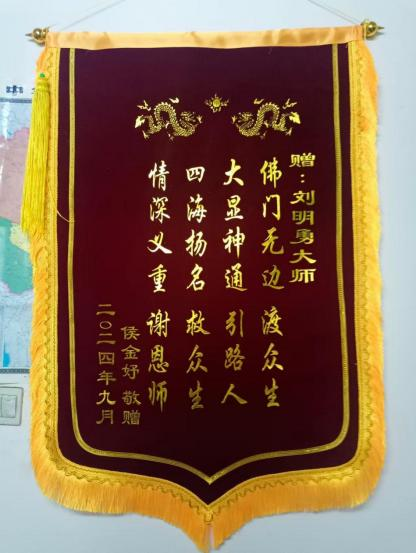 赠：刘明勇大师
佛门无边 渡众生
大显神通 引路人
四海扬名 救众生
情深义重 谢恩师
侯金好 敬赠
二〇二四年九月